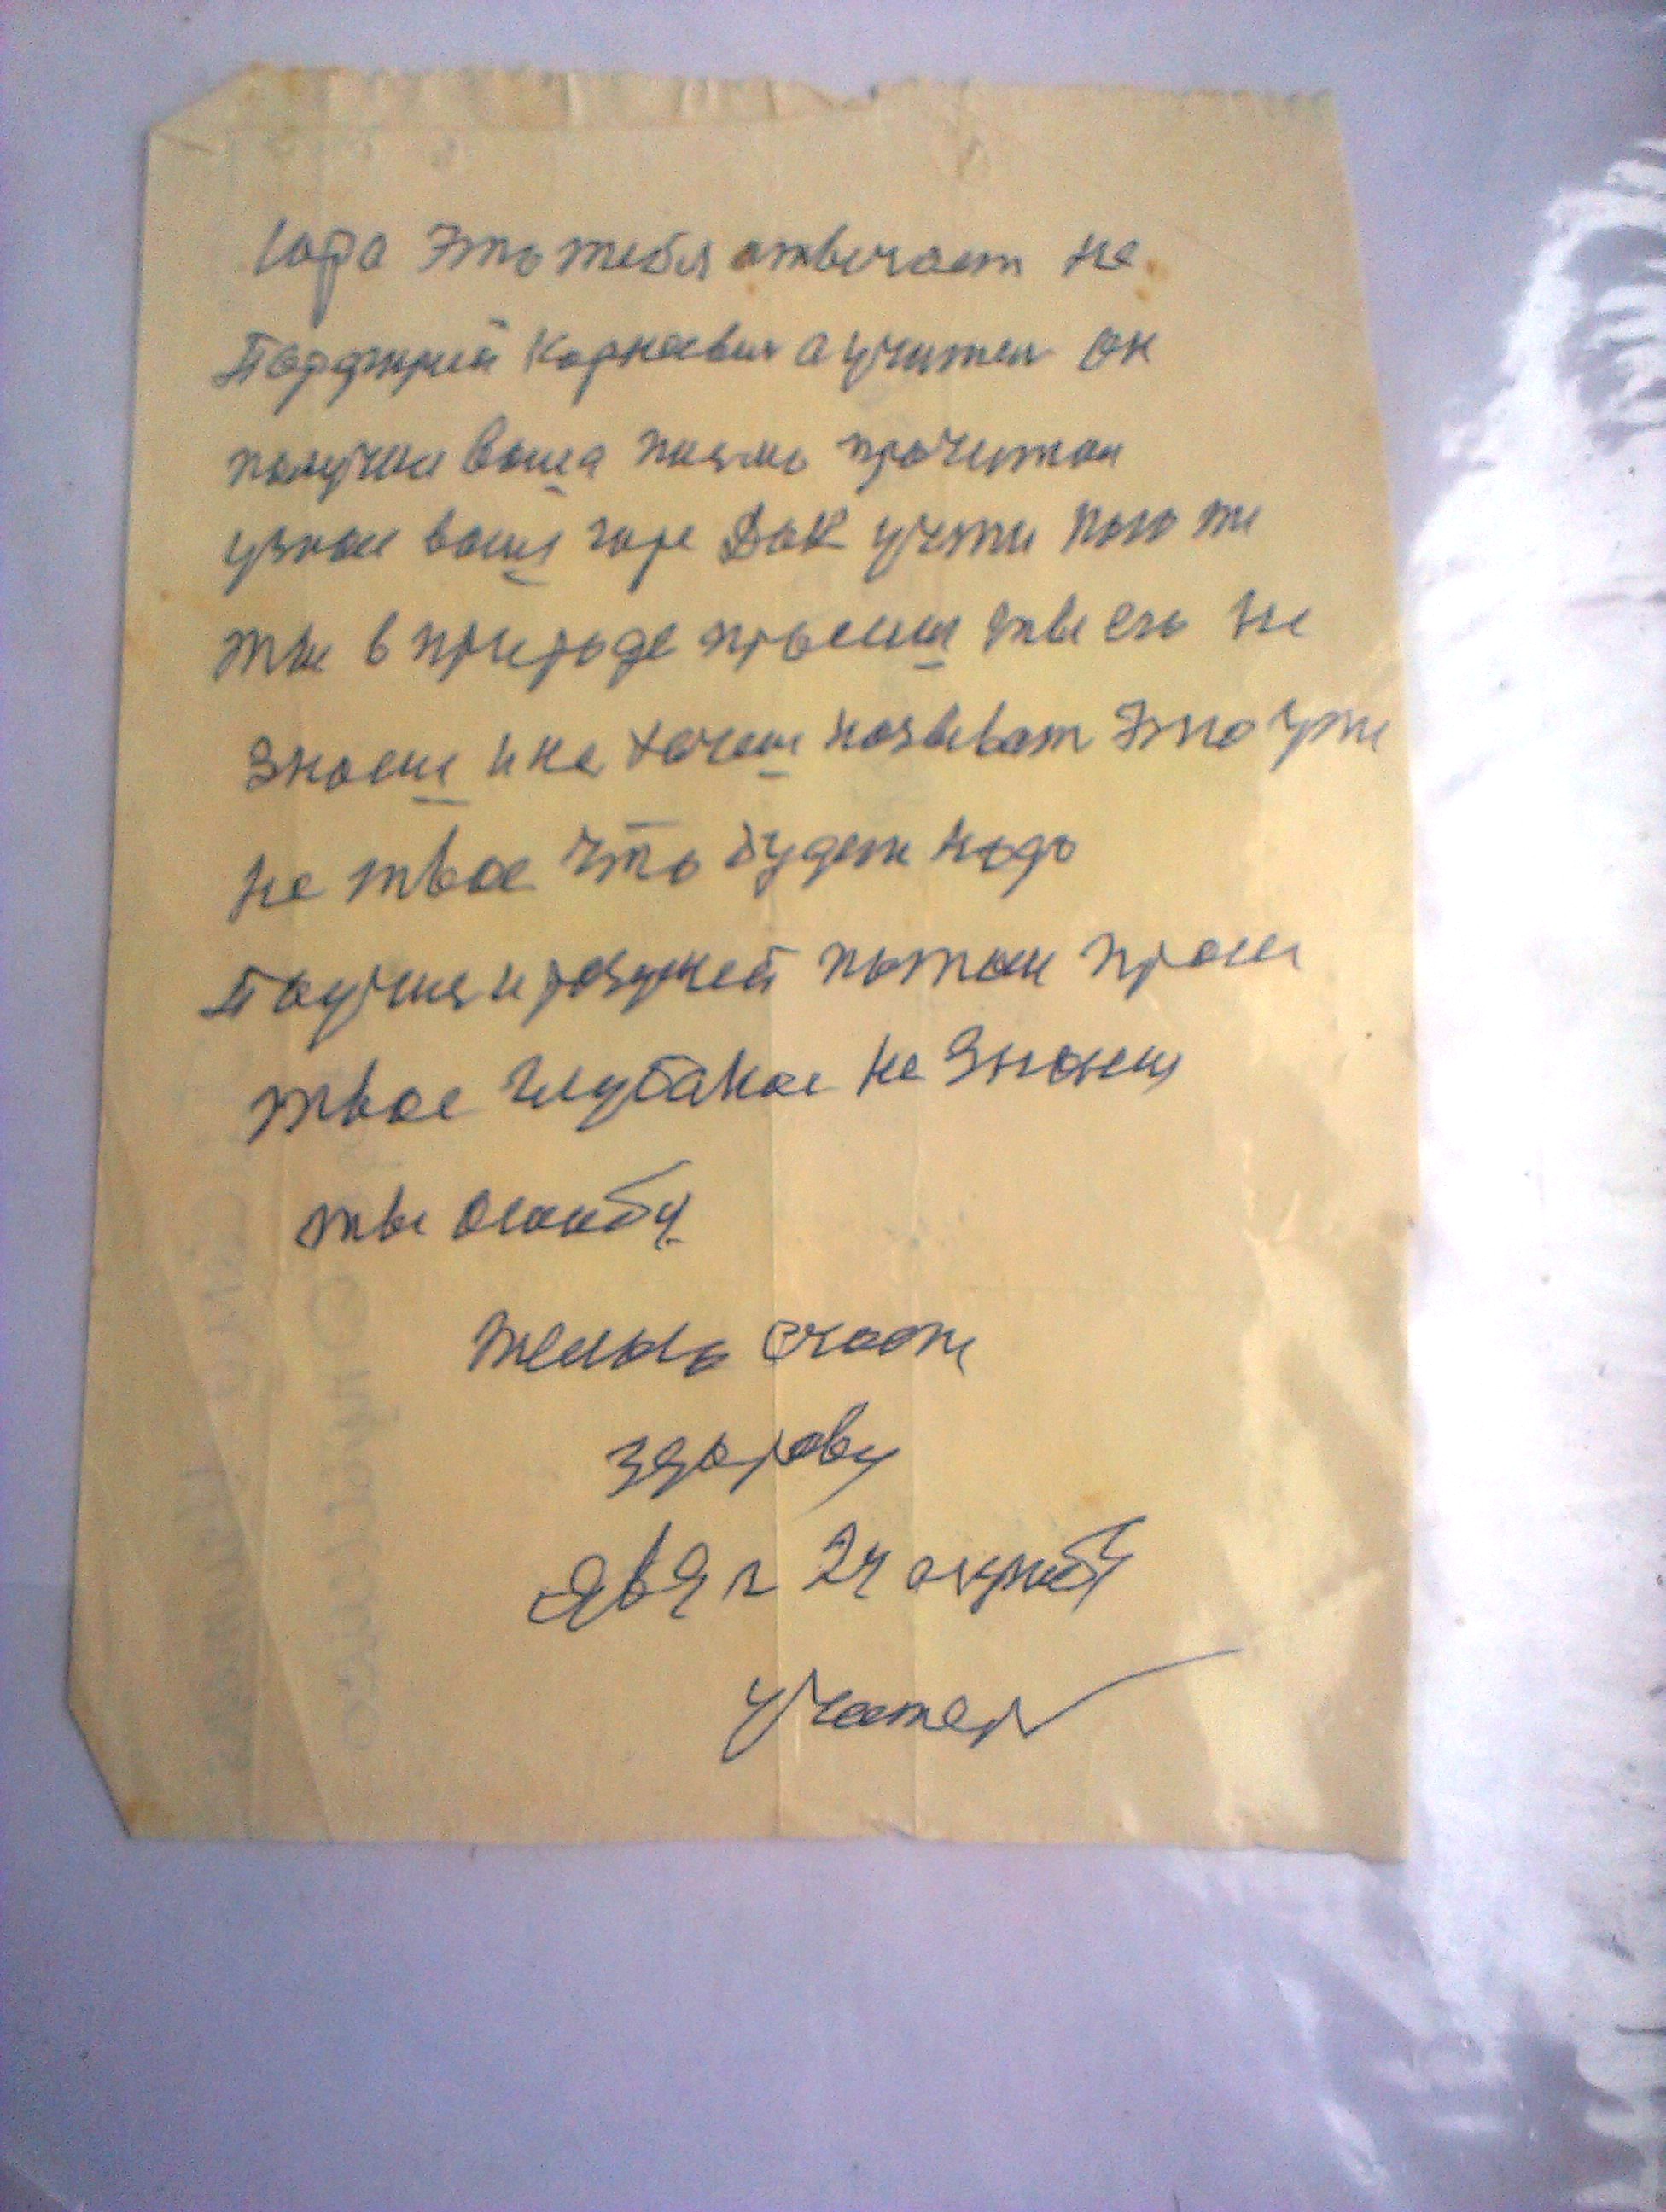 Юра это тебя отвичаит не
Парфирий Корнеевич а учител он
получил ваша писмо прочитал
узнал ваши горе Дак учти
ты в природе просиш ты его не
знаеш и не хочеш называт это уже
не твое что будет надо
и разумей потом проси
твое глубакое не знания
ты ошибу
желаю счасти
здоровя
24
учител